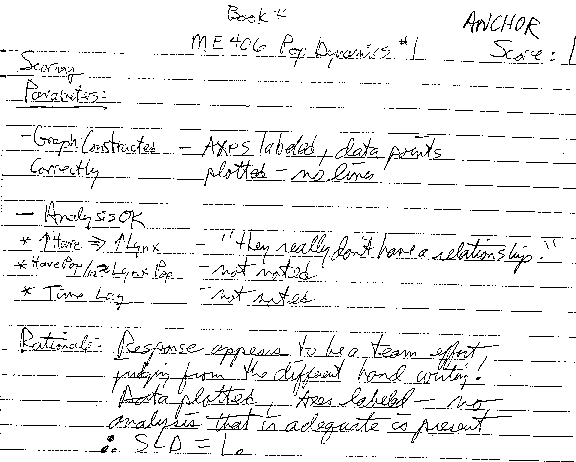 Book #
ANCHOR
ME 406 Pop Dynamics #1
Score: 1
Scoring
Parameters:
- Graph Constructed - Axes labeled, data points
Correctly plotted - no lines
- Analysis OK
* ↑Hare ⇒ ↑Lynx - "they really don't have a relationship."
* Hare Pop Lynx Pop - not noted
* Time Lag - not noted
Rationale: Response appears to be a team effort,
judging from the different hand writing!
Data plotted, Axes labeled - no
analysis that is adequate is present
∴ = 1.